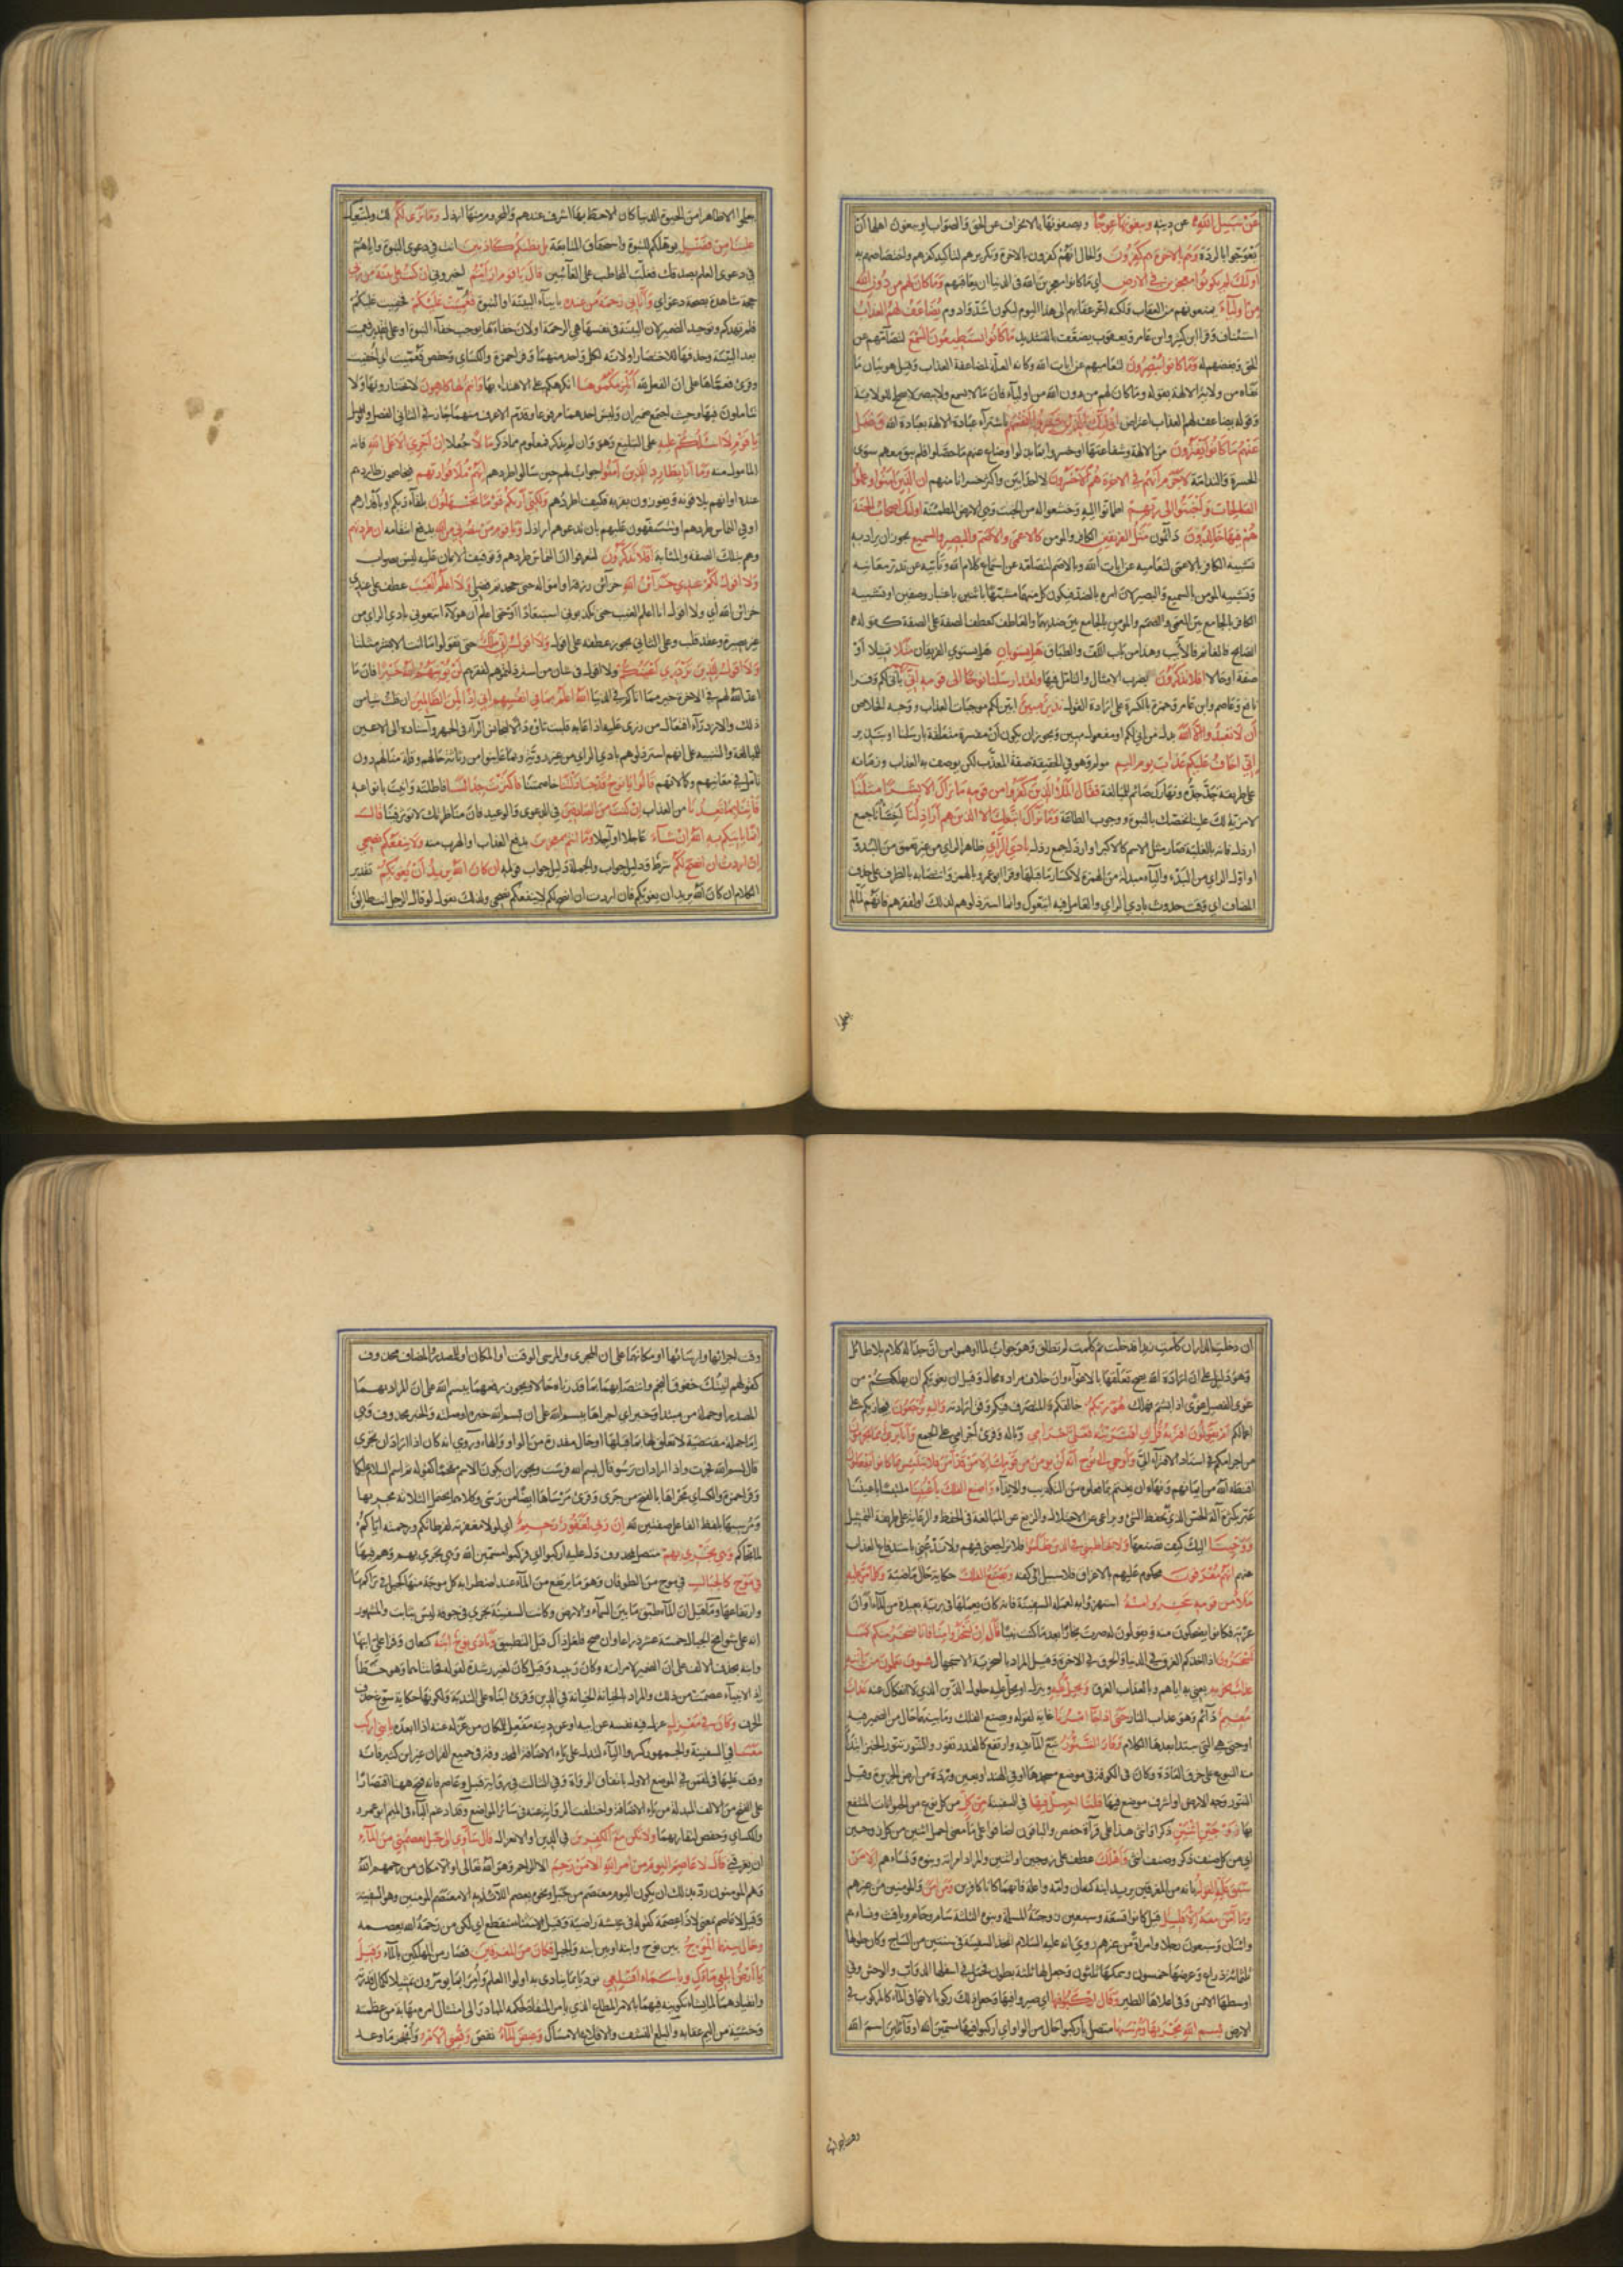 عن سبيل الله عن دينه ويبغونها عوجا ويصفونها بالانحراف عن الحق والصواب او يبغون اهلها ان
يعوجوا بالردة وهم بالاخرة هم كفرون والحال انهم كفرون بالاخرة وتكريرهم لتاكيد كفرهم واختصاصهم به
اولئك لم يكونوا معجزين في الارض اي ما كانوا معجزين الله في الدنيا ان يعاقبهم وما كان لهم من دون الله
من اولياء يمنعونهم من العقاب ولكنه اخر عقابهم الى هذا اليوم ليكون اشد وادوم يضاعف لهم العذاب
استئناف وقرا ابن كثير وابن عامر ويعقوب يضعف بالتشديد ما كانوا يستطيعون السمع لتصامهم عن
الحق وبغضهم له وما كانوا يبصرون لتعاميهم عن ايات الله وكانه العلة لمضاعفة العذاب وقيل هو بيان ما
نفاه من ولاية الالهة بقوله وما كان لهم من دون الله من اولياء فان ما لا يسمع ولا يبصر لا يصلح للولاية
وقوله يضاعف لهم العذاب اعتراض اولئك الذين خسروا انفسهم باشتراء عبادة الالهة بعبادة الله وضل
عنهم ما كانوا يفترون من الالهة وشفاعتها او خسروا بما بدلوا وضاع عنهم ما حصلوا فلم يبق معهم سوى
الحسرة والندامة لا جرم انهم في الاخرة هم الاخسرون لا احد ابين واكثر خسرانا منهم ان الذين امنوا وعملوا
الصالحات واخبتوا الى ربهم اطمانوا اليه وخشعوا له من الخبت وهي الارض المطمئنة اولئك اصحاب الجنة
هم فيها خالدون دائمون مثل الفريقين الكافر والمومن كالاعمى والاصم والبصير والسميع يجوز ان يراد به
تشبيه الكافر بالاعمى لتعاميه عن ايات الله وبالاصم لتصامه عن استماع كلام الله وتأبيه عن تدبر معانيه
وتشبيه المومن بالسميع والبصير لان امره بالضد فيكون كل منهما مشبها باثنين باعتبار وصفين او تشبيه
الكافر بالجامع بين العمى والصمم والمومن بالجامع بين ضديهما والعاطف لعطف الصفة على الصفة كقوله
الصابح فالغانم فالآيب وهذا من باب اللف والطباق هل يستويان هل يستوي الفريقان مثلا تمثيلا او
صفة او حالا افلا تذكرون بضرب الامثال والتامل فيها ولقد ارسلنا نوحا الى قومه اني باني لكم وقرا
نافع وعاصم وابن عامر وحمزة بالكسر على ارادة القول نذير مبين ابين لكم موجبات العذاب ووجه الخلاص
ان لا تعبدوا الا الله بدل من اني لكم او مفعول مبين ويجوز ان يكون ان مفسرة متعلقة بارسلنا او بنذير
اني اخاف عليكم عذاب يوم اليم مولم وهو في الحقيقة صفة المعذب لكن يوصف به العذاب وزمانه
على طريقة جد جده ونهارك صائم للمبالغة فقال الملأ الذين كفروا من قومه ما نراك الا بشرا مثلنا
لا مزية لك علينا تخصك بالنبوة ووجوب الطاعة وما نراك اتبعك الا الذين هم اراذلنا اخساؤنا جمع
ارذل فانه بالغلبة صار مثل الاسم كالاكبر او ارذل جمع رذل بادي الراي ظاهر الراي من غير تعمق من البدو
او اول الراي من البدء والياء مبدلة من الهمزة لانكسار ما قبلها وقرا ابو عمرو بالهمز وانتصابه بالظرف على حذف
المضاف اي وقت حدوث بادي الراي والعامل فيه اتبعك وانما استرذلوهم لذلك او لفقرهم فانهم لما لم
يعلموا
يعلموا الا ظاهرا من الحيوة الدنيا كان الاحظ بها اشرف عندهم والمحروم منها ارذل وما نرى لكم لك ولمتبعيك
علينا من فضل يوهلكم للنبوة واستحقاق المتابعة بل نظنكم كاذبين انت في دعوى النبوة واياهم
في دعوى العلم بصدقك فغلب المخاطب على الغائبين قال يا قوم ارايتم اخبروني ان كنت على بينة من ربي
حجة شاهدة بصحة دعواي وآتاني رحمة من عنده بايتاء البينة او النبوة فعميت عليكم فخفيت عليكم
فلم تهدكم وتوحيد الضمير لان البينة في نفسها هي الرحمة او لان خفاءها يوجب خفاء النبوة او على تقدير فعميت
بعد البينة وحذفها للاختصار او لانه لكل واحد منهما وقرا حمزة والكسائي وحفص فعميت اي اخفيت
وقرئ فعماها على ان الفعل لله انلزمكموها انكرهكم على الاهتداء بها وانتم لها كارهون لا تختارونها ولا
تتاملون فيها وحيث اجتمع ضميران وليس احدهما مرفوعا وقدم الاعرف منهما جاز في الثاني الفصل والوصل
ويا قوم لا اسئلكم عليه على التبليغ وهو وان لم يذكر فمعلوم مما ذكر مالا جعلا ان اجري الا على الله فانه
المامول منه وما انا بطارد الذين آمنوا جواب لهم حين سالوا طردهم انهم ملاقوا ربهم فيخاصمون طاردهم
عنده او انهم يلاقونه ويفوزون بقربه فكيف اطردهم ولكني اريكم قوما تجهلون بلقاء ربكم او باقدارهم
او في التماس طردهم او تتسفهون عليهم بان تدعوهم اراذل ويا قوم من ينصرني من الله بدفع انتقامه ان طردتهم
وهم بتلك الصفة والمثابة افلا تذكرون لتعرفوا ان التماس طردهم وتوقيف الايمان عليه ليس بصواب
ولا اقول لكم عندي خزائن الله خزائن رزقه او امواله حتى جحدتم فضلي ولا اعلم الغيب عطف على عندي
خزائن الله اي ولا اقول انا اعلم الغيب حتى تكذبوني استبعادا او حتى اعلم ان هؤلاء اتبعوني بادي الراي من
غير بصيرة وعقد قلب وعلى الثاني يجوز عطفه على اقول ولا اقول اني ملك حتى تقولوا ما انت الا بشر مثلنا
ولا اقول للذين تزدري اعينكم ولا اقول في شان من استرذلتموهم لفقرهم لن يوتيهم الله خيرا فان ما
اعد الله لهم في الاخرة خير مما آتاكم في الدنيا الله اعلم بما في انفسهم اني اذا لمن الظالمين ان قلت شيئا من
ذلك والازدراء افتعال من زرى عليه اذا عابه قلبت تاؤه دالا لتجانس الزاء في الجهر واسناده الى الاعين
للمبالغة والتنبيه على انهم استرذلوهم بادي الراي من غير روية وبما عاينوا من رثاثة حالهم وقلة منالهم دون
تامل في معانيهم وكمالاتهم قالوا يا نوح قد جادلتنا خاصمتنا فاكثرت جدالنا فاطلته او اتيت بانواعه
فأتنا بما تعدنا من العذاب ان كنت من الصادقين في الدعوى والوعيد فان مناظرتك لا توثر فينا قال
انما ياتيكم به الله ان شاء عاجلا او آجلا وما انتم بمعجزين بدفع العذاب او الهرب منه ولا ينفعكم نصحي
ان اردت ان انصح لكم شرط ودليل جواب والجملة دليل جواب قوله ان كان الله يريد ان يغويكم تقدير
الكلام ان كان الله يريد ان يغويكم فان اردت ان انصح لكم لا ينفعكم نصحي ولذلك نقول لو قال الرجل انت طالق
ان دخلت الدار ان كلمت زيدا فدخلت ثم كلمت لم تطلق وهو جواب لما اوهموا من ان جداله كلام بلا طائل
وهو دليل على ان ارادة الله يصح تعلقها بالاغواء وان خلاف مراده محال وقيل ان يغويكم ان يهلككم من
غوى الفصيل غوى اذا بشم فهلك هو ربكم خالقكم والمتصرف فيكم وفق ارادته واليه ترجعون فيجازيكم على
اعمالكم ام يقولون افتريه قل ان افتريته فعلي اجرامي وباله وقرئ اجرامي على الجمع وانا بريء مما تجرمون
من اجرامكم في اسناد الافتراء الي واوحي الى نوح انه لن يومن من قومك الا من قد آمن فلا تبتئس بما كانوا يفعلون
اقنطه الله من ايمانهم ونهاه ان يغتم بما فعلوه من التكذيب والايذاء واصنع الفلك باعيننا ملتبسا باعيننا
عبر بكثرة آلة الحس الذي يحفظ الشئ ويراعى عن الاختلال والزيغ عن المبالغة في الحفظ والرعاية على طريقة التمثيل
ووحينا اليك كيف تصنعها ولا تخاطبني في الذين ظلموا ولا تراجعني فيهم ولا تدعني باستدفاع العذاب
عنهم انهم مغرقون محكوم عليهم بالاغراق فلا سبيل الى كفه ويصنع الفلك حكاية حال ماضية وكلما مر عليه
ملأ من قومه سخروا منه استهزؤا به لعمله السفينة فانه كان يعملها في برية بعيدة من الماء اوان
عزته فكانوا يضحكون منه ويقولون له صرت نجارا بعد ما كنت نبيا قال ان تسخروا منا فانا نسخر منكم كما
تسخرون اذا اخذكم الغرق في الدنيا والحرق في الاخرة وقيل المراد بالسخرية الاستجهال فسوف تعلمون من ياتيه
عذاب يخزيه يعني به اياهم وبالعذاب الغرق ويحل عليه وينزل او يحل عليه حلول الدين الذي لا انفكاك عنه عذاب
مقيم دائم وهو عذاب النار حتى اذا جاء امرنا غاية لقوله ويصنع الفلك وما بينهما حال من الضمير فيه
او حتى هي التي يبتدا بعدها الكلام وفار التنور نبع الماء فيه وارتفع كالقدر تفور والتنور تنور الخبز ابتدا
منه النبوع على خرق العادة وكان في الكوفة في موضع مسجدها او في الهند او بعين وردة من ارض الجزيرة وقيل
التنور وجه الارض او اشرف موضع فيها قلنا احمل فيها في السفينة من كل من كل نوع من الحيوانات المنتفع
بها زوجين اثنين ذكرا وانثى هذا على قراءة حفص والباقون اضافوا على معنى احمل اثنين من كل زوجين
اي من كل صنف ذكر وصنف انثى واهلك عطف على زوجين او اثنين والمراد امراته وبنوه ونساءهم الا من
سبق عليه القول بانه من المغرقين يريد ابنه كنعان وامه واعلة فانهما كانا كافرين ومن آمن والمومنين من غيرهم
وما آمن معه الا قليل قيل كانوا تسعة وسبعين زوجته المسلمة وبنوه الثلثة سام وحام ويافث ونساءهم
واثنان وسبعون رجلا وامراة من غيرهم روي انه عليه السلام اتخذ السفينة في سنتين من الساج وكان طولها
ثلثمائة ذراع وعرضها خمسون وسمكها ثلثون وجعل لها ثلثة بطون فحمل في اسفلها الدواب والوحش وفي
اوسطها الانس وفي اعلاها الطير وقال اركبوا فيها اي صيروا فيها وجعل ذلك ركوبا لانها في الماء كالمركوب في
الارض بسم الله مجريها ومرسيها متصل باركبوا حال من الواو اي اركبوا فيها مسمين الله او قائلين بسم الله
وقت اجرائها
وقت اجرائها وارسائها او مكانهما على ان المجرى والمرسى الوقت او المكان او المصدر والمضاف محذوف
كقولهم آتيك خفوق النجم وانتصابهما بما قدرناه حالا ويجوز رفعهما ببسم الله على ان المراد بهما
المصدر او جملة من مبتدا وخبر اي اجراها بسم الله على ان بسم الله خبره او صلته والخبر محذوف وهي
اما جملة مقتضبة لا تعلق لها بما قبلها او حال مقدرة من الواو او الهاء وروي انه كان اذا اراد ان تجري
قال بسم الله فجرت واذا اراد ان ترسو قال بسم الله فرست ويجوز ان يكون الاسم مقحما كقوله ثم اسم السلام عليكما
وقرا حمزة والكسائي مجراها بالفتح من جرى وقرئ مرساها ايضا من رسى وكلاهما يحتمل الثلاثة مجريها
ومرسيها بلفظ الفاعل صفتين لله ان ربي لغفور رحيم اي لولا مغفرته لفرطاتكم ورحمته اياكم
لما نجاكم وهي تجري بهم متصل بمحذوف دل عليه اركبوا اي فركبوا مسمين الله وهي تجري بهم وهم فيها
في موج كالجبال في موج من الطوفان وهو ما يرتفع من الماء عند اضطرابه كل موجة منها كجبل في تراكمها
وارتفاعها وما قيل ان الماء طبق ما بين السماء والارض وكانت السفينة تجري في جوفه ليس بثابت والمشهور
انه علا شوامخ الجبال خمسة عشر ذراعا وان صح فلعل ذاك قبل التطبيق ونادى نوح ابنه كنعان وقرا علي ابنها
وابنه بحذف الالف على ان الضمير لامراته وكان ربيبه وقيل كان لغير رشدة لقوله فخانتاهما وهو خطأ
اذ الانبياء عصمت من ذلك والمراد بالخيانة الخيانة في الدين وقرئ ابناه على الندبة ولكونها حكاية سوغ حذف
الحرف وكان في معزل عزل فيه نفسه عن ابيه او عن دينه مفعل للمكان من عزله عنه اذا ابعده يا بني اركب
معنا في السفينة والجمهور كسروا الياء لتدل على ياء الاضافة المحذوفة في جميع القران غير ابن كثير فانه
وقف عليها في لقمن في الموضع الاول باتفاق الرواة وفي الثالث في رواية قنبل وعاصم فانه فتح ههنا اقتصارا
على الفتح من الالف المبدلة من ياء الاضافة واختلفت الرواية عنه في سائر المواضع وقد ادغم الباء في الميم ابو عمرو
والكسائي وحفص لتقاربهما ولا تكن مع الكفرين في الدين او الانعزال قال سآوي الى جبل يعصمني من الماء
ان يغرقني قال لا عاصم اليوم من امر الله الا من رحم الا الراحم وهو الله تعالى او الا مكان من رحمهم الله
وهم المومنون رد بذلك ان يكون اليوم معتصم من جبل ونحوه يعصم اللائذ به الا معتصم المومنين وهو السفينة
وقيل لا عاصم بمعنى لا ذا عصمة كقوله في عيشة راضية وقيل الاستثناء منقطع اي لكن من رحمه الله يعصمه
وحال بينهما الموج بين نوح وابنه او بين ابنه والجبل فكان من المغرقين فصار من المهلكين بالماء وقيل
يا ارض ابلعي ماءك ويا سماء اقلعي نوديا بما ينادى به اولوا العلم وامرا بما يومرون تمثيلا لكمال قدرته
وانقيادهما لما يشاء تكوينه فيهما بالامر المطاع الذي يامر المنقاد لحكمه المبادر الى امتثال امره مهابة من عظمته
وخشية من اليم عقابه والبلع النشف والاقلاع الامساك وغيض الماء نقص وقضي الامر وانجز ما وعد